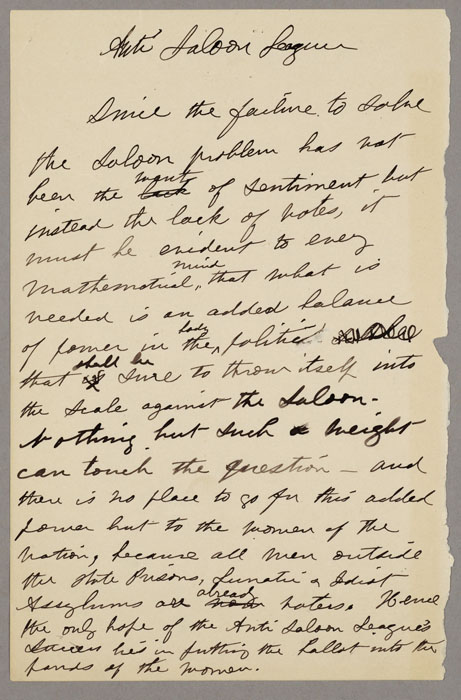 Anti Saloon League
Since the failure to solve
the Saloon problem has not
been the want lack of sentiment but
instead the lack of votes, it
must be evident to every
mathematical mind, that what is
needed is an added balance
of power in the body politic
that shall be sure to throw itself into
the scale against the Saloon.
Nothing but such a weight
can touch the question — and
there is no place to go for this added
power but to the women of the
nation, because all men outside
the State Prisons, Lunatic & Idiot
Assylums are already voters. Hence
the only hope of the Anti Saloon League's
success lies in putting the ballot into the
hands of the women.